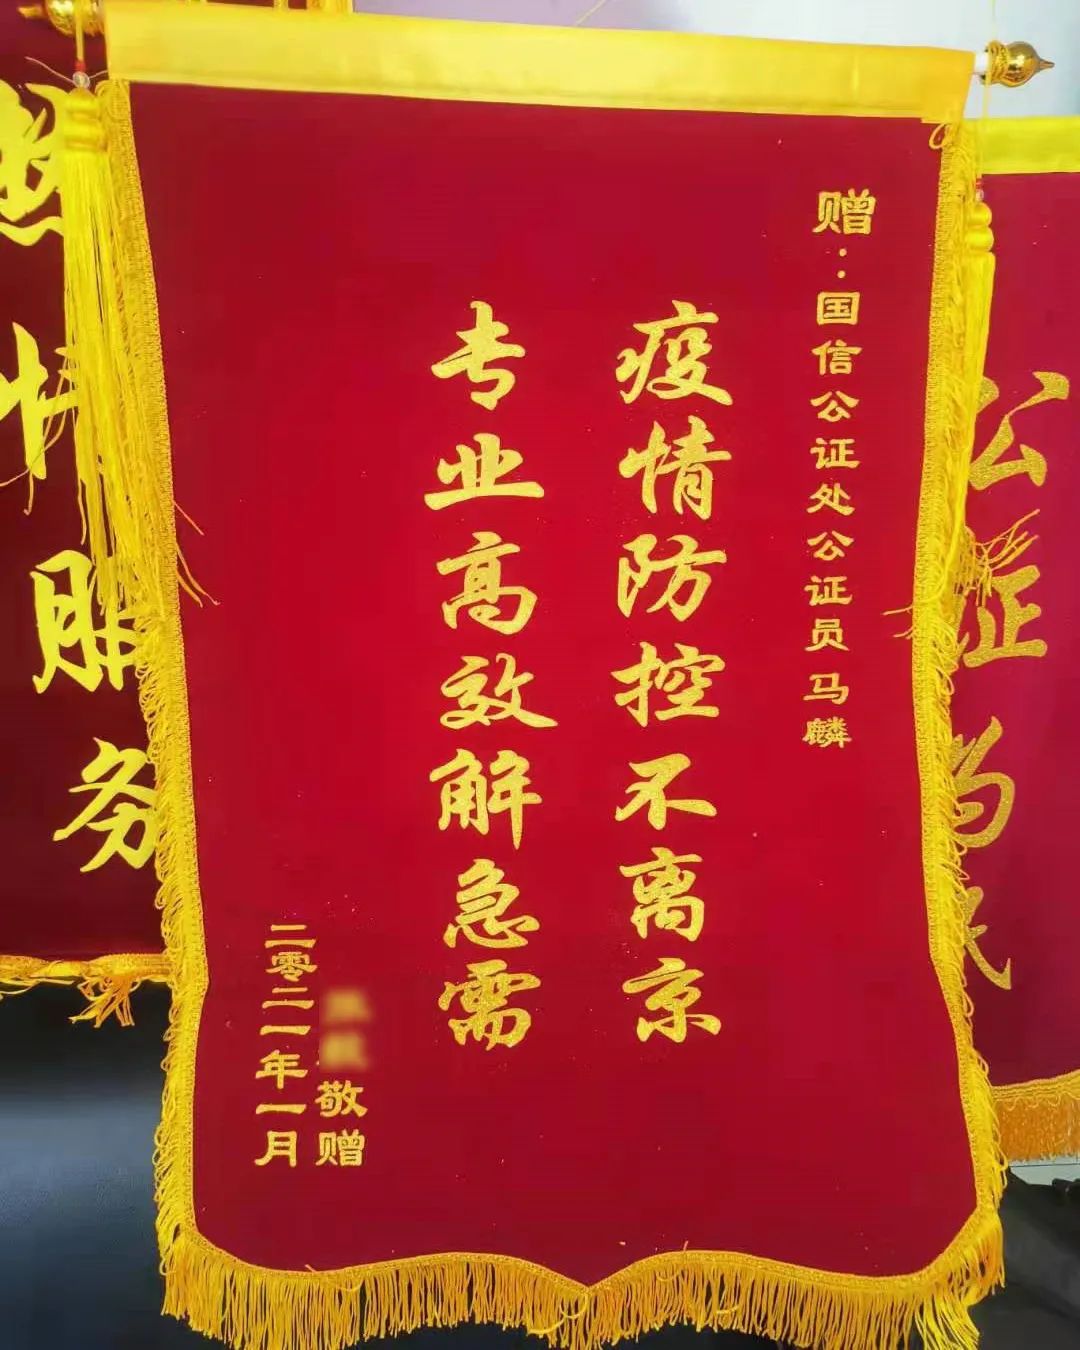 赠：国信公证处公证员马麟
疫情防控不离京
专业高效解急需
敬赠
二零二一年一月
热情服务
公证为民